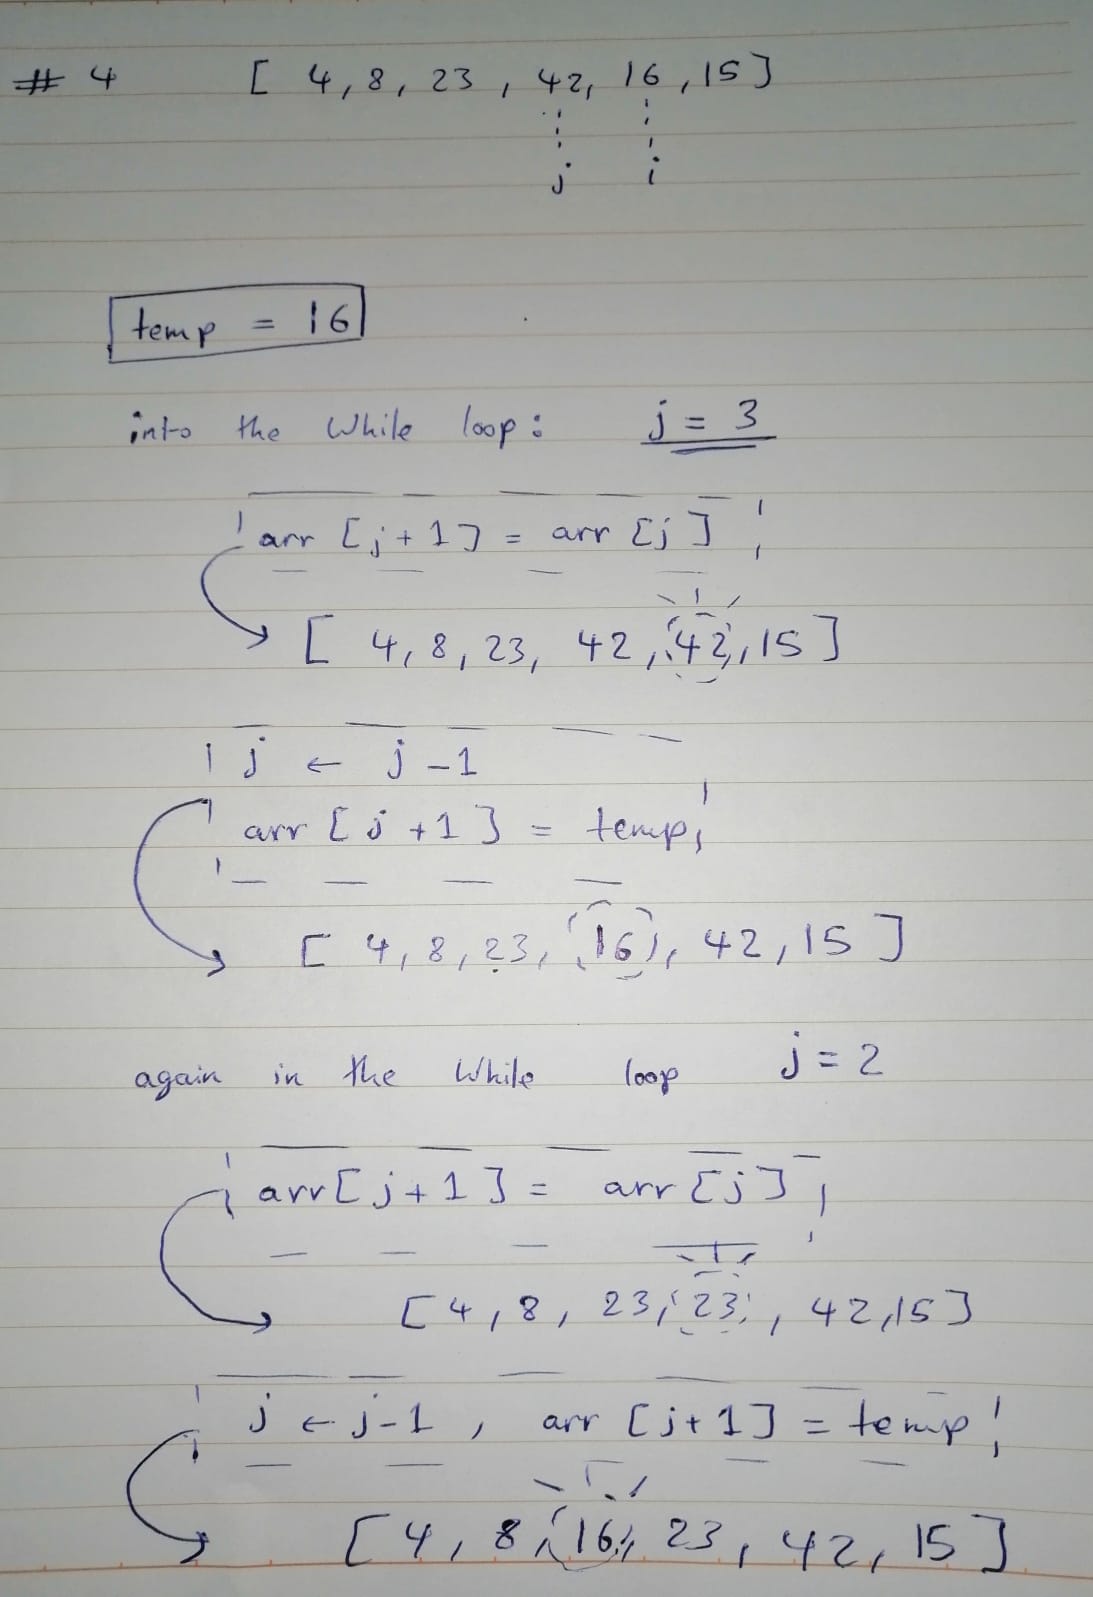 # 4 [ 4, 8, 23, 42, 16, 15 ]
j i
temp = 16
into the while loop: j = 3
arr [j+1] = arr [j]
[ 4, 8, 23, 42, 42, 15 ]
j ← j - 1
arr [j+1] = temp
[ 4, 8, 23, 16, 42, 15 ]
again in the while loop j = 2
arr[j+1] = arr [j]
[ 4, 8, 23, 23, 42, 15 ]
j ← j-1, arr [j+1] = temp
[ 4, 8, 16, 23, 42, 15 ]